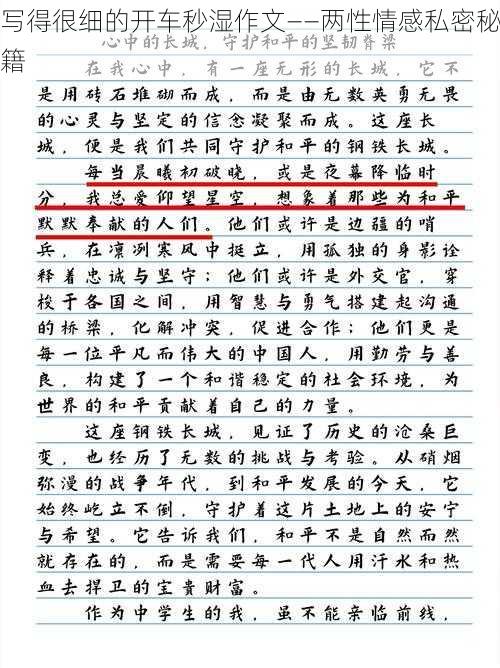 写得很细的开车秒湿作文——两性情感私密秘
籍
心中的长城，守护和平的坚韧脊梁
在我心中，有一座无形的长城，它不
是用砖石堆砌而成，而是由无数英勇无畏
的心灵与坚定的信念凝聚而成。这座长
城，便是我们共同守护和平的钢铁长城。
每当晨曦初破晓，或是夜幕降临时
分，我总爱仰望星空，想象着那些为和平
默默奉献的人们。他们或许是边疆的哨
兵，在凛冽寒风中挺立，用孤独的身影诠
释着忠诚与坚守；他们或许是外交官，穿
梭于各国之间，用智慧与勇气搭建起沟通
的桥梁，化解冲突，促进合作；他们更是
每一位平凡而伟大的中国人，用勤劳与善
良，构建了一个和谐稳定的社会环境，为
世界的和平贡献着自己的力量。
这座钢铁长城，见证了历史的沧桑巨
变，也经历了无数的挑战与考验。从硝烟
弥漫的战争年代，到和平发展的今天，它
始终屹立不倒，守护着这片土地上的安宁
与希望。它告诉我们，和平不是自然而然
就存在的，而是需要每一代人用汗水和热
血去捍卫的宝贵财富。
作为中学生的我，虽不能亲临前线，